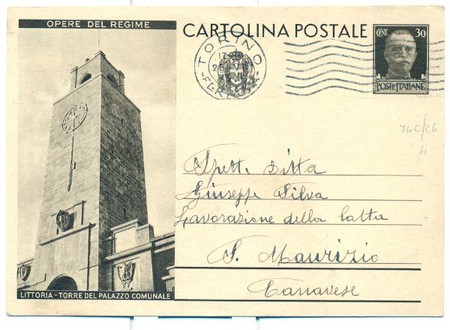 OPERE DEL REGIME
CARTOLINA POSTALE
TORINO
CENT 30
POSTE ITALIANE
Spett. Ditta
Giuseppe Silva
Lavorazione della latta
S. Maurizio
Canavese
LITTORIA - TORRE DEL PALAZZO COMUNALE